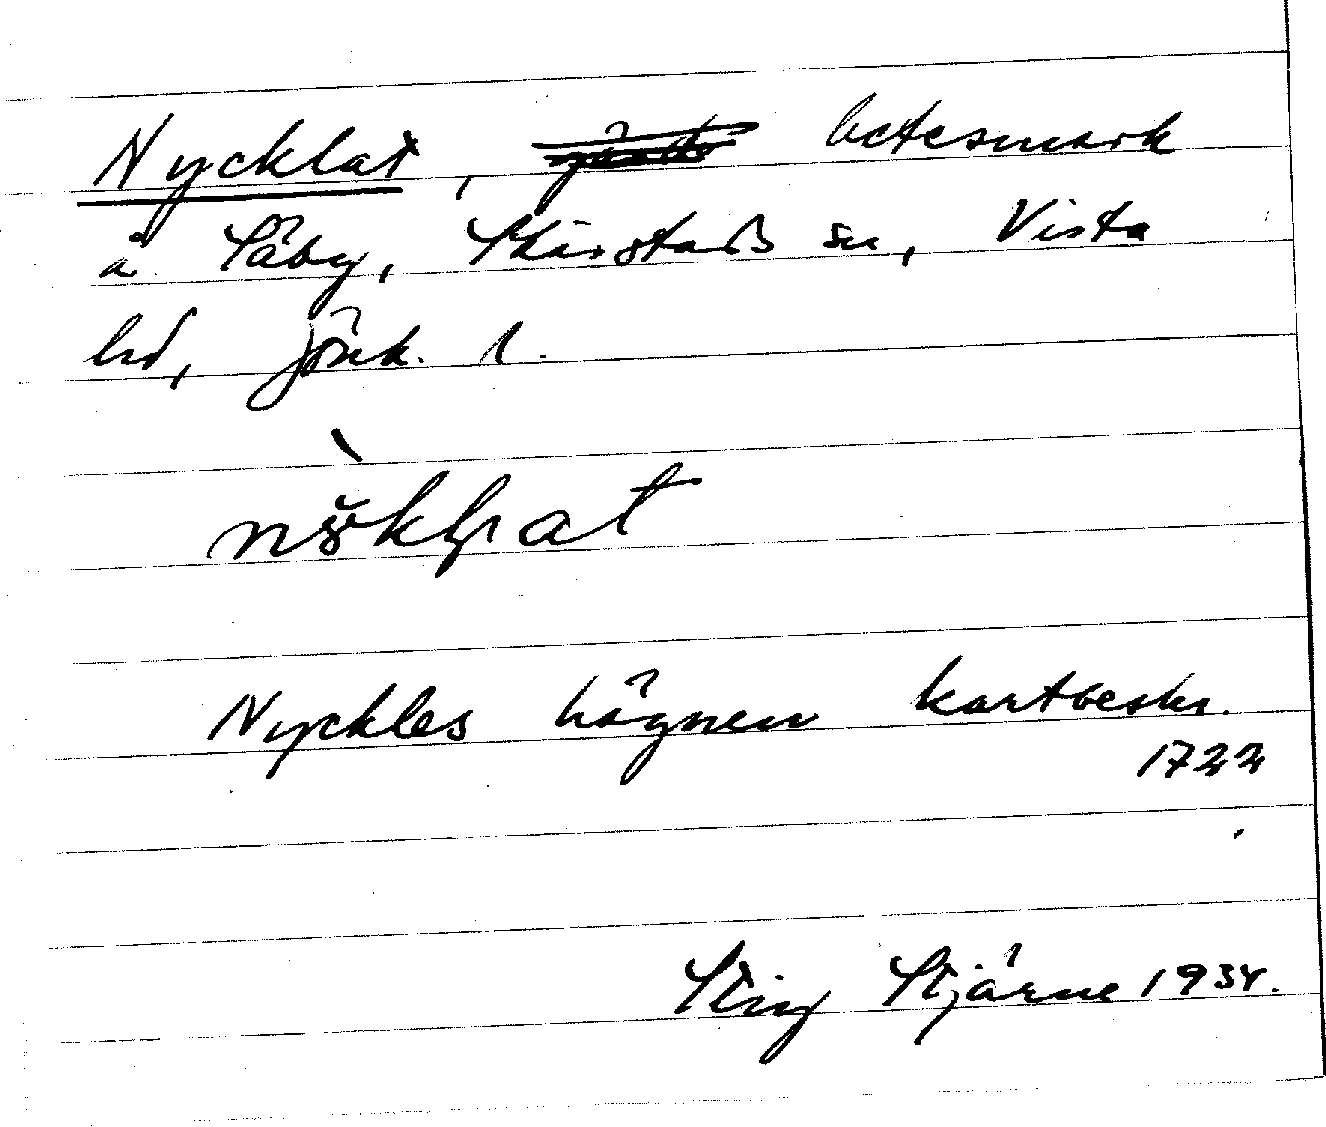 Nycklat, betesmark
å Såby, Skärstads sn, Vista
hd, Jönk. l.
Nyckles hägnen kartbeskr.
1722
Stig Stjärne 1934.